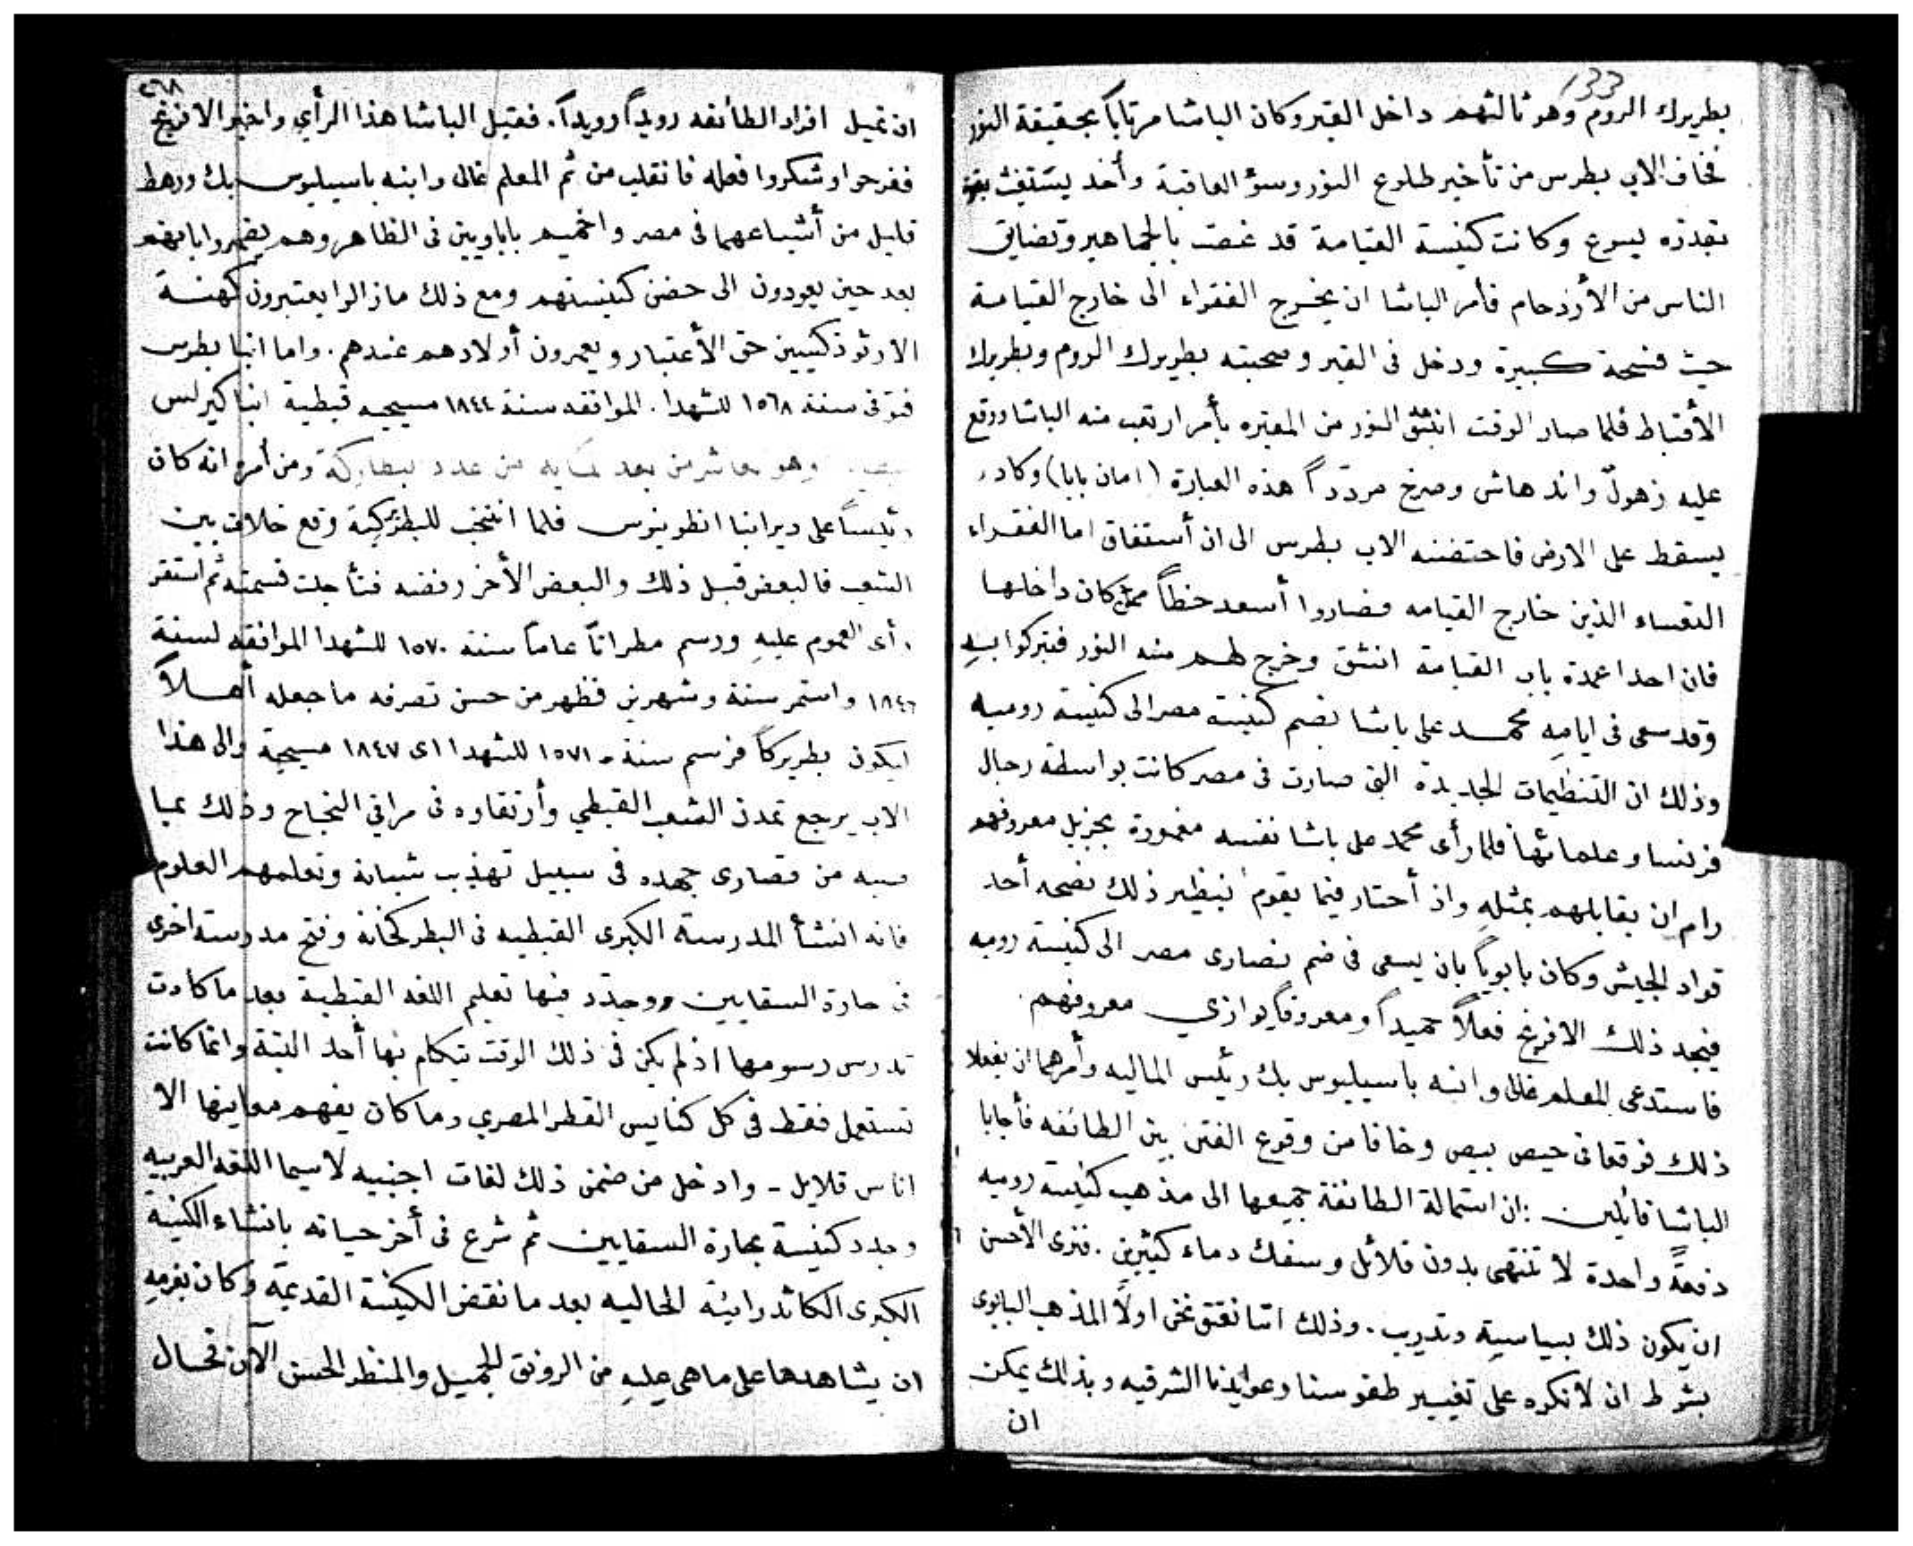 133
بطريرك الروم وهو ثالثهم داخل القبر وكان الباشا مرتاباً بحقيقة النور
فخاف الاب بطرس من تأخير طلوع النور وسؤ العاقبة وأخذ يستغيث
يسوع وكانت كنيسة القيامة قد غصت بالجماهير وتضايق
الناس من الأزدحام فأمر الباشا ان يخرج الفقراء الى خارج القيامة
حيث فسحة كبيرة ودخل فى القبر وصحبته بطريرك الروم وبطريرك
الأقباط فلما صار الوقت انبثق النور من المقبره بأمر ارتعب منه الباشا ووقع
عليه زهولٌ واندهاش وصرخ مردّداً هذه العبارة (امان بابا) وكاد
يسقط على الارض فاحتضنه الاب بطرس الى ان أستفاق اما الفقراء
التعساء الذين خارج القيامه فصاروا أسعد حظاً ممن كان داخلها
فان احد اعمدة باب القيامة انشق وخرج لهم منه النور فتبركوا به
وقد سعى فى ايامه محمد على باشا بضم كنيسة مصر الى كنيسة روميه
وذلك ان التنظيمات الجديدة التى صارت فى مصر كانت بواسطة رجال
فرنسا وعلمائها فلما رأى محمد على باشا نفسه مغمورة بجزيل معروفهم
رام ان يقابلهم بمثله واذ أحتار فيما يقوم بنظير ذلك نصحه أحد
قواد الجيش وكان بابوياً بان يسعى فى ضم نصارى مصر الى كنيسة روميه
فيجد ذلك الافرنج فعلاً حميداً ومعروفاً يوازي معروفهم
فاستدعى المعلم غالى وابنه باسيليوس بك رئيس الماليه وأمرهما ان يفعلا
ذلك فوقعا فى حيص بيص وخافا من وقوع الفتن بين الطائفه فأجابا
الباشا قائلين : ان استمالة الطائفة جميعها الى مذهب كنيسة روميه
دفعةً واحدة لا تنتهى بدون قلاقل وسفك دماء كثيرين . فنرى الأحسن
ان يكون ذلك بسياسية وتدريب . وذلك اننا نعتنق نحن اولاً المذهب البابوى
بشرط ان لا نكره على تغيير طقوسنا وعوايدنا الشرقيه وبذلك يمكن
ان
٢٦٨
ان نميل افراد الطائفه رويداً رويداً . فقبل الباشا هذا الرأي واخبر الافرنج
ففرحوا وشكروا فعله فانقلب من ثم المعلم غالى وابنه باسيليوس بك ورهط
قليل من أشياعهما فى مصر واخميم باباويين فى الظاهر وهم يضمروا بانهم
بعد حين يعودون الى حضن كنيستهم ومع ذلك ما زالوا يعتبرون كهنة
الارثوذكسيين حق الأعتبار ويعمرون أولادهم عندهم . واما انبا بطرس
فتوفى سنة ١٥٦٨ للشهدا . الموافقه سنة ١٨٤٤ مسيحيه قبطية انبا كيرلس
وهو عاشر من بعد لمايه من عدد لبطاركة ومن أمره انه كان
رئيساً على دير انبا انطونيوس فلما انتخب للبطركية وقع خلاف بين
الشعب فالبعض قبل ذلك والبعض الأخر رفضه فتأجلت قسمته ثم استقر
رأى العموم عليه ورسم مطراناً عاماً سنة ١٥٧٠ للشهدا الموافقه لسنة
١٨٤٦ واستمر سنة وشهرين فظهر من حسن تصرفه ما جعله أهلاً
ليكون بطريركاً فرسم سنة ١٥٧١ للشهدا اى ١٨٤٧ مسيحية والى هذا
الاب يرجع تمدن الشعب القبطي وأرتقاوه فى مراقي النجاح وذلك بما
من قصارى جهده فى سبيل تهذيب شبانه وتعلمهم العلوم
فانه انشأ المدرسة الكبرى القبطيه فى البطركخانة وفتح مدرسة اخرى
فى حارة السقايين وجدّد فيها تعليم اللغه القبطية بعد ما كادت
تدرس رسومها اذ لم يكن فى ذلك الوقت يتكلم بها أحد البتة وانما كانت
تستعمل فقط فى كل كنايس القطر المصري وما كان يفهم معاينها الا
اناس قلايل - وادخل من ضمن ذلك لغات اجنبيه لاسيما اللغه العربيه
وجدد كنيسة بحارة السقايين ثم شرع فى أخر حياته بانشاء الكنيسة
الكبرى الكاتدرائية الحاليه بعد ما نقض الكنيسة القديمة وكان بعزمه
ان يشاهدها على ما هى عليه من الرونق الجميل والمنظر الحسن الآن فحال